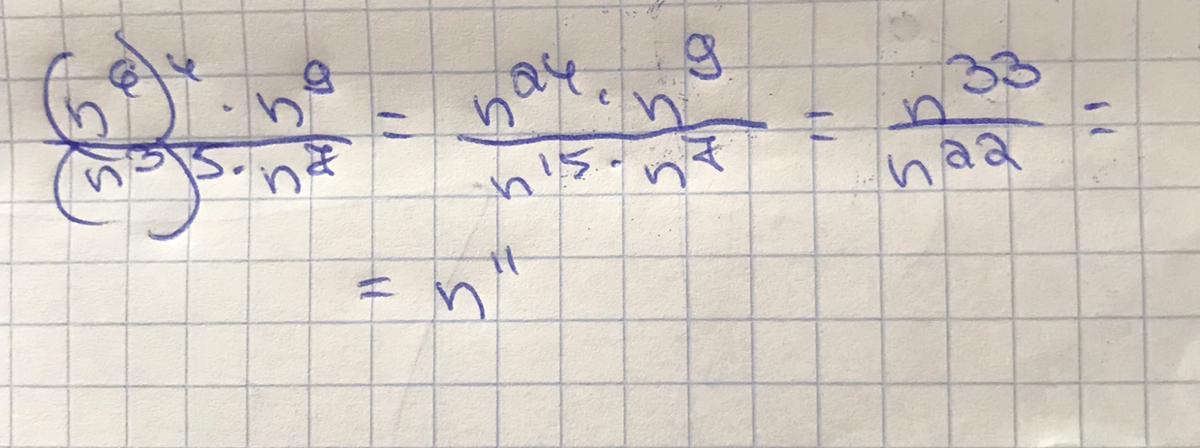 (n⁶)⁴ · n⁹ / (n³)⁵ · n⁷ = n²⁴ · n⁹ / n¹⁵ · n⁷ = n³³ / n²² =
= n¹¹